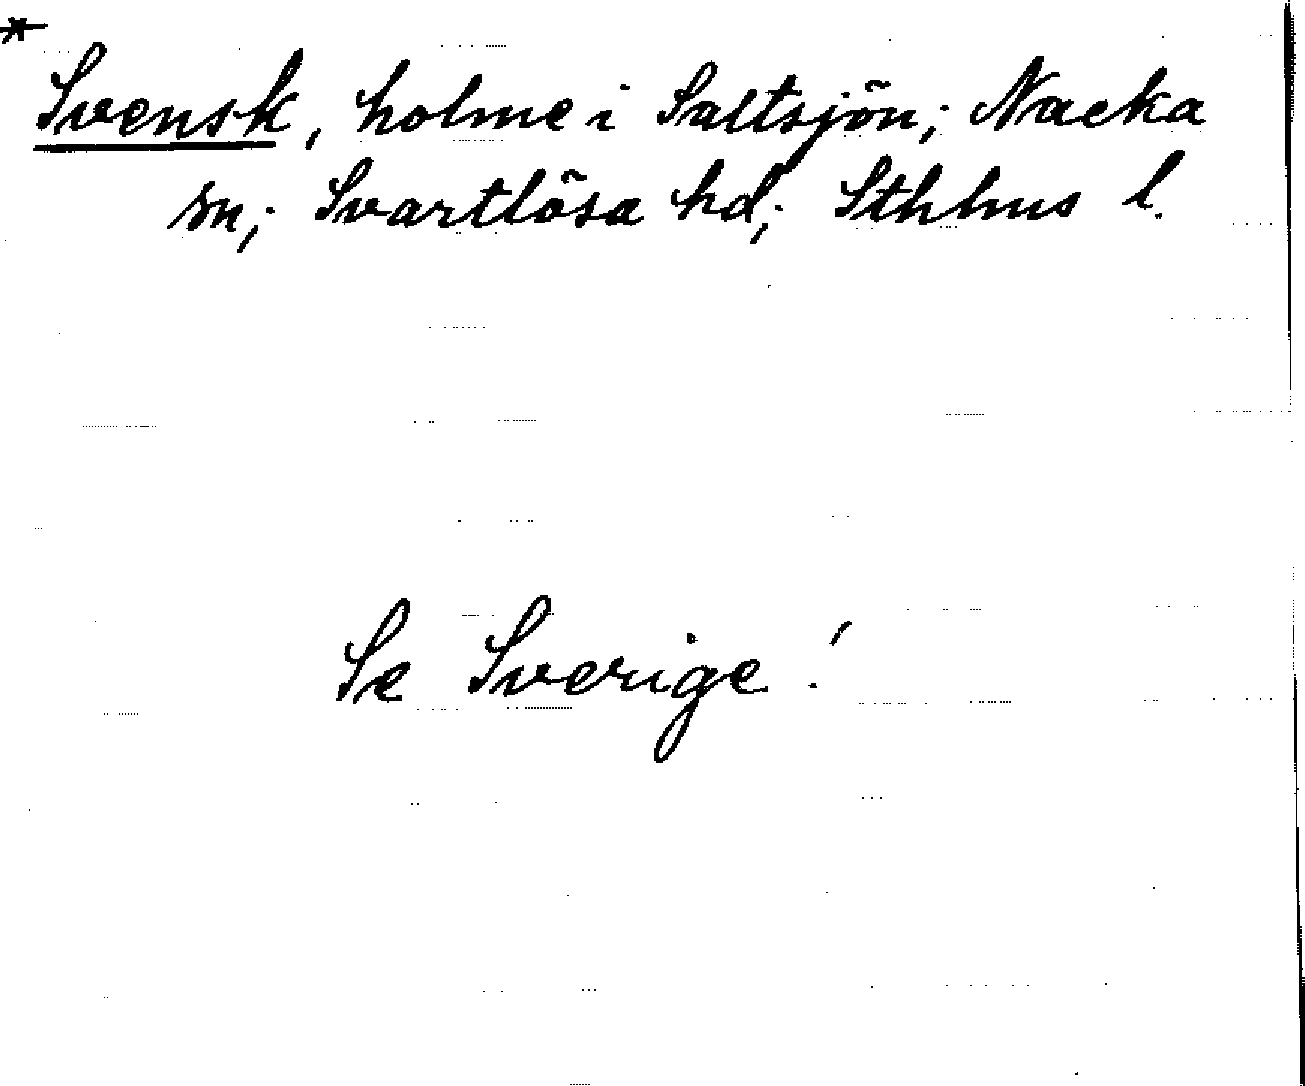 *
Svensk, holme i Saltsjön; Nacka
sn; Svartlösa hd; Sthlms l.
Se Sverige!